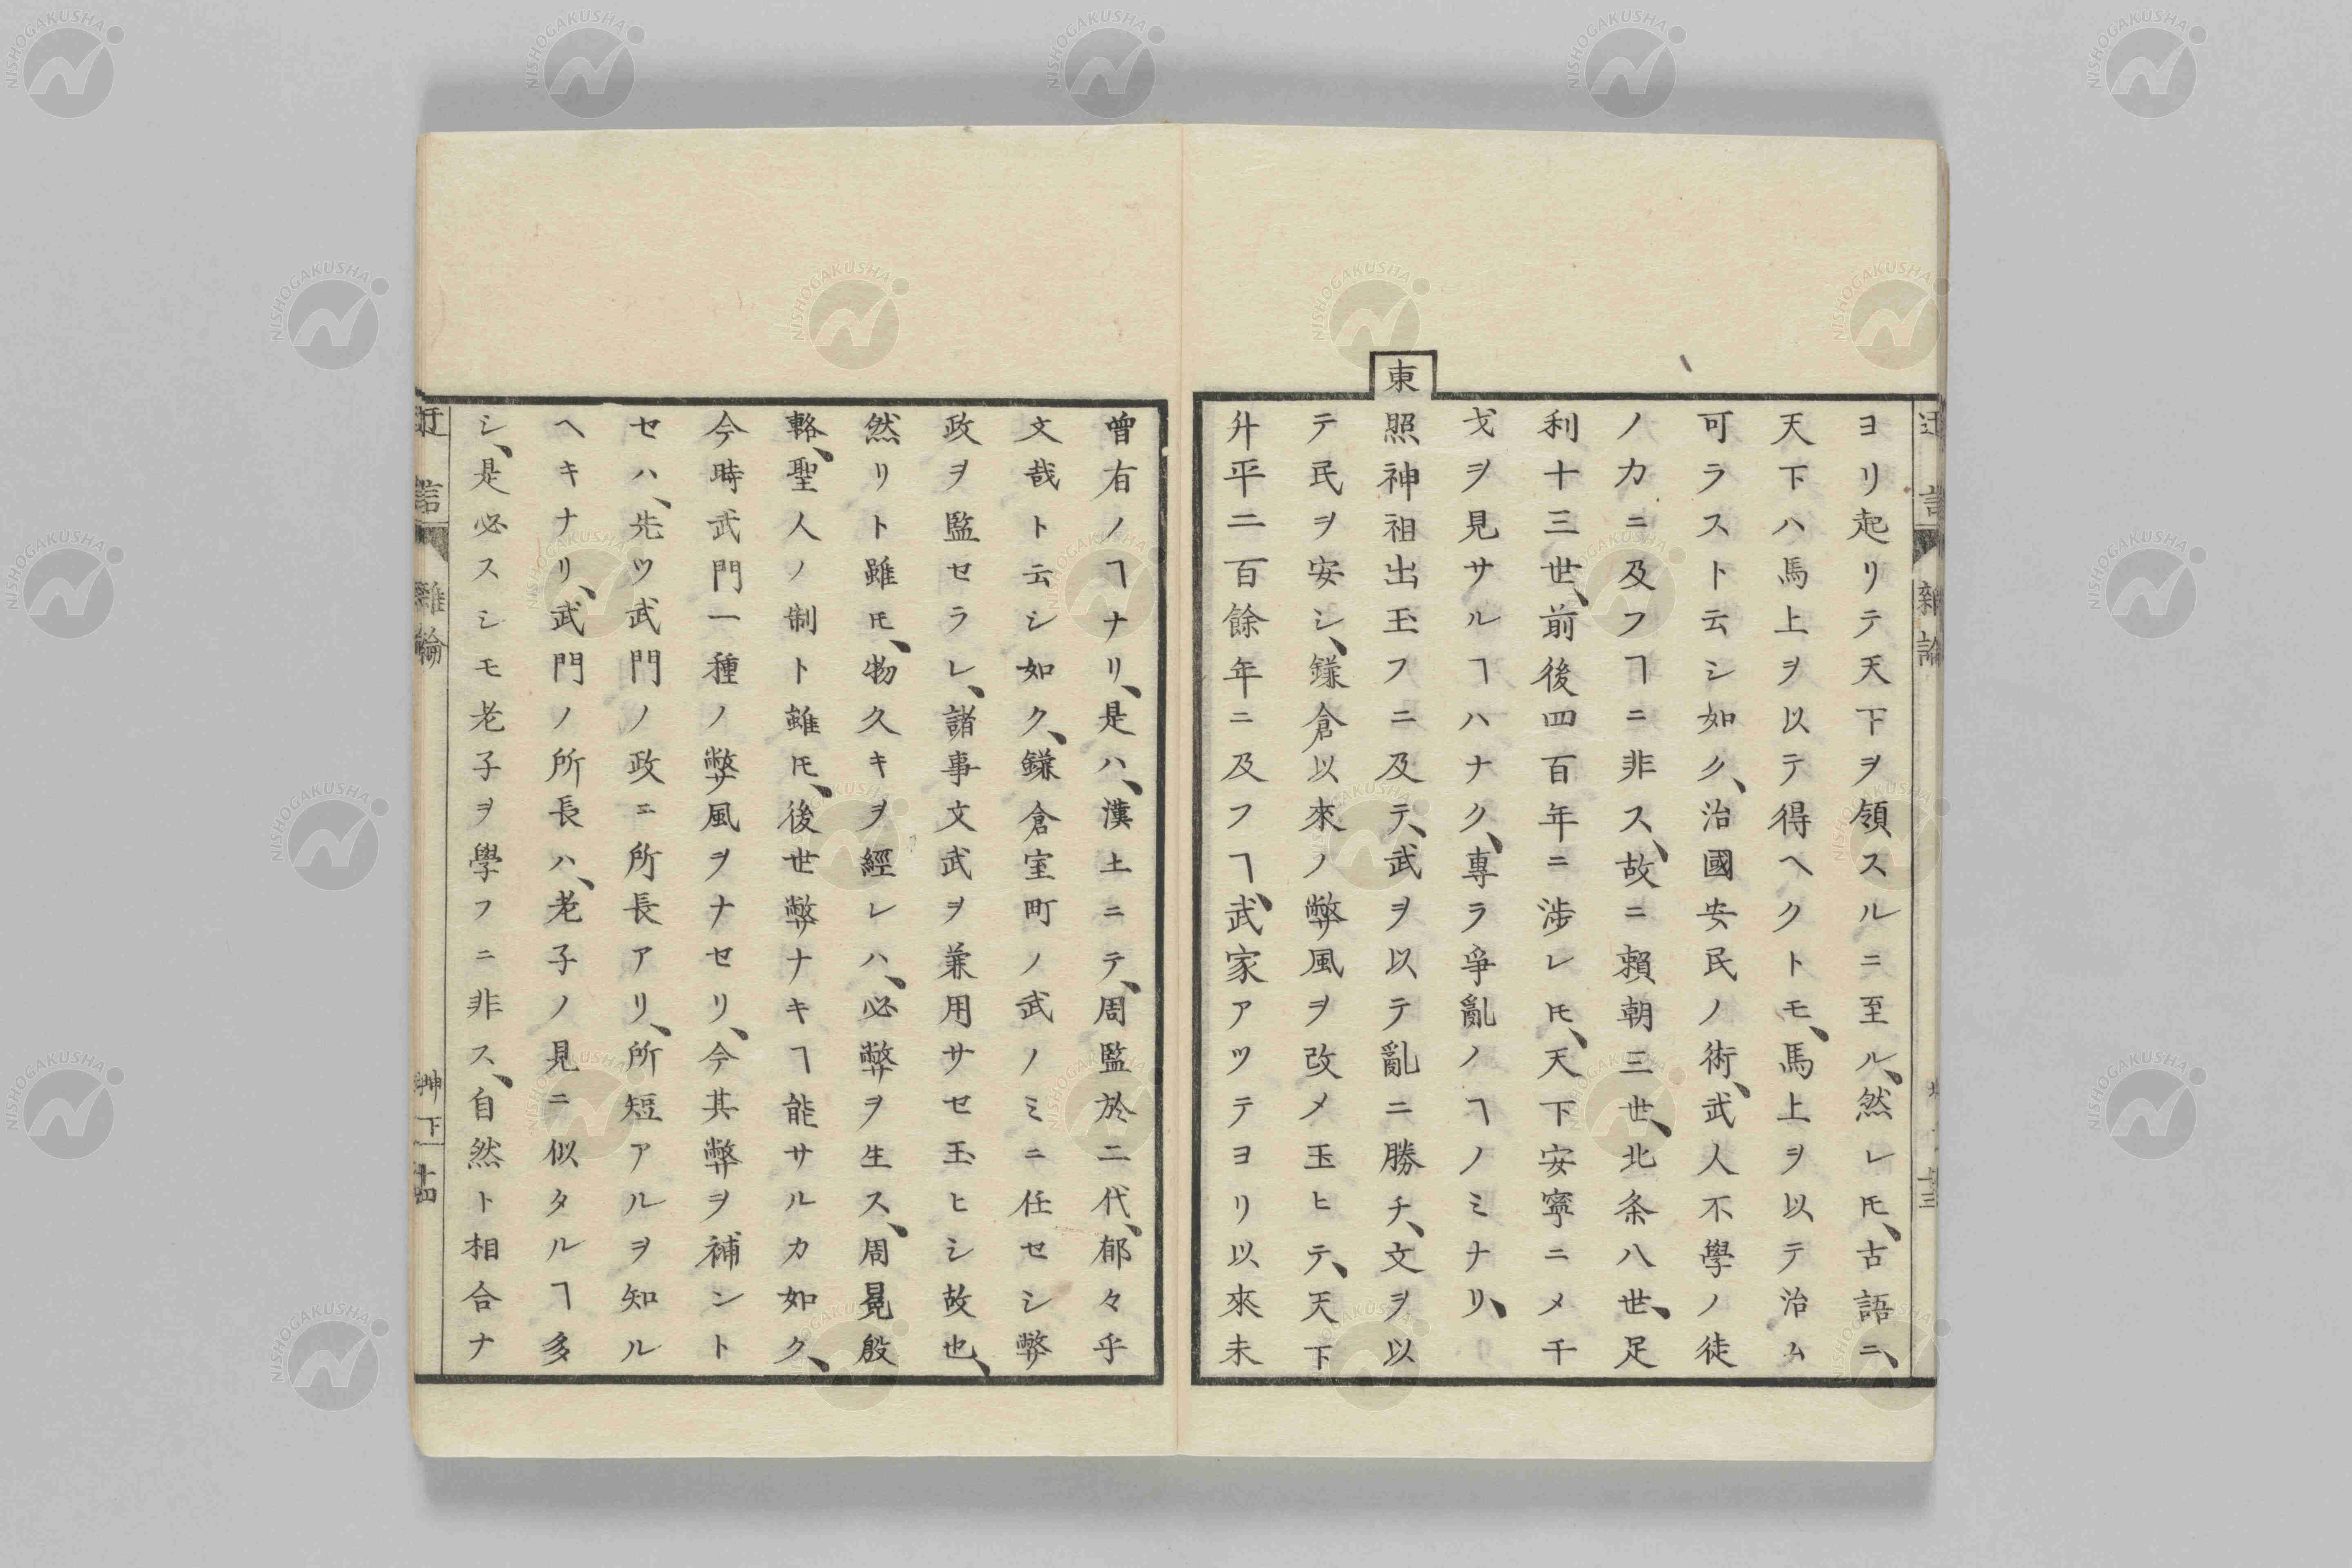 ヨリ起リテ天下ヲ領スルニ至ル、然レ𪜈、古語ニ、
天下ハ馬上ヲ以テ得ヘクトモ、馬上ヲ以テ治ム
可ラスト云シ如ク、治國安民ノ術、武人不學ノ徒
ノカニ及フヿニ非ス、故ニ賴朝三世、北条八世、足
利十三世、前後四百年ニ渉レ𪜈、天下安寧ニメ干
戈ヲ見サルヿハナク、專ラ爭亂ノヿノミナリ、
東照神祖出玉フニ及テ、武ヲ以テ亂ニ勝チ、文ヲ以
テ民ヲ安シ、鎌倉以來ノ弊風ヲ改メ玉ヒテ、天下
升平二百餘年ニ及フヿ、武家アツテヨリ以來未
曽有ノヿナリ、是ハ、漢土ニテ、周監於二代、郁々乎
文哉ト云シ如ク、鎌倉室町ノ武ノミニ任セシ弊
政ヲ監セラレ、諸事文武ヲ兼用サセ玉ヒシ故也、
然リト雖𪜈、物久キヲ經レハ、必弊ヲ生ス、周冕殷
輅、聖人ノ制ト雖𪜈、後世弊ナキヿ能サルカ如ク、
今時武門一種ノ弊風ヲナセリ、今其弊ヲ補ント
セハ、先ツ武門ノ政ニ所長アリ、所短アルヲ知ル
ヘキナリ、武門ノ所長ハ、老子ノ見ニ似タルヿ多
シ、是必スシモ老子ヲ學フニ非ス、自然ト相合ナ
迂言
雜論
艸下
十四
NISHOGAKUSHA